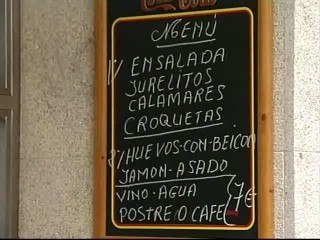 MENÚ
1/ ENSALADA
JURELITOS
CALAMARES
CROQUETAS
2/ HUEVOS-CON-BEICON
JAMON-ASADO
VINO-AGUA
POSTRE O CAFE 7€